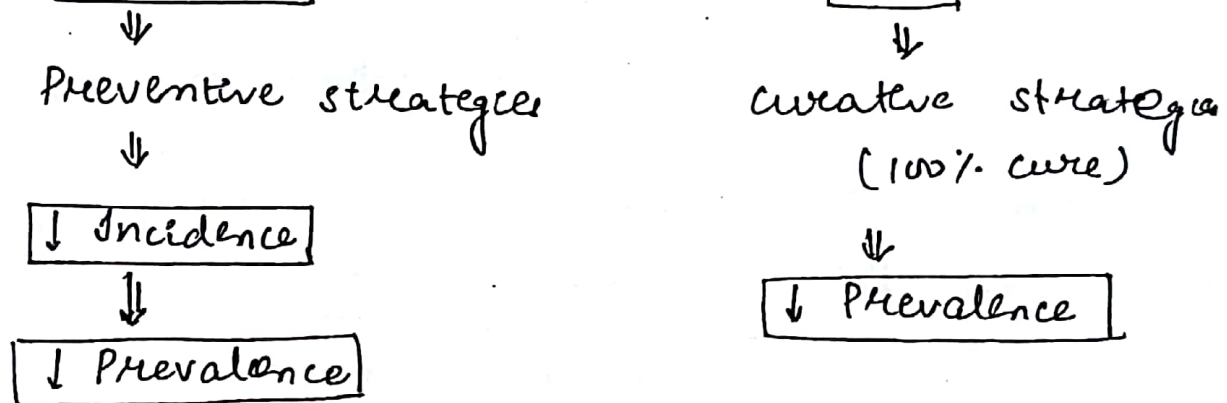 ⇓
Preventive strategies
⇓
↓ Incidence
⇓
↓ Prevalence
⇓
curative strategies
(100% cure)
⇓
↓ Prevalence